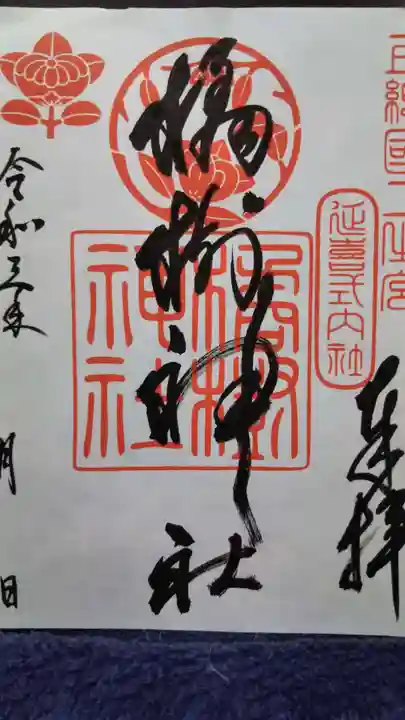 上総国二之宮
延喜式内社
奉拝
橘樹神社
橘樹
神社
令和三年 月 日